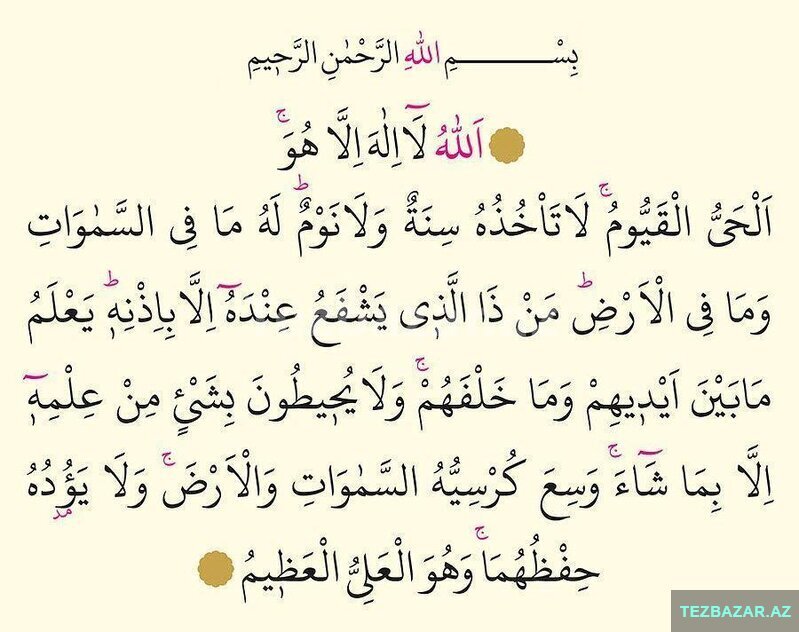 بِسْــــــــمِ اللّٰهِ الرَّحْمٰنِ الرَّحٖيمِ
اَللّٰهُ لَٓا اِلٰهَ اِلَّا هُوَۚ
اَلْحَىُّ الْقَيُّومُۚ لَا تَاْخُذُهُ سِنَةٌ وَلَا نَوْمٌؕ لَهُ مَا فِى السَّمٰوَاتِ
وَمَا فِى الْاَرْضِؕ مَنْ ذَا الَّذٖى يَشْفَعُ عِنْدَهُٓ اِلَّا بِاِذْنِهٖؕ يَعْلَمُ
مَا بَيْنَ اَيْدٖيهِمْ وَمَا خَلْفَهُمْۚ وَلَا يُحٖيطُونَ بِشَيْئٍ مِنْ عِلْمِهٖٓ
اِلَّا بِمَا شَٓاءَۚ وَسِعَ كُرْسِيُّهُ السَّمٰوَاتِ وَالْاَرْضَۚ وَلَا يَؤُدُهُ
حِفْظُهُمَاۚ وَهُوَ الْعَلِىُّ الْعَظٖيمُ
TEZBAZAR.AZ